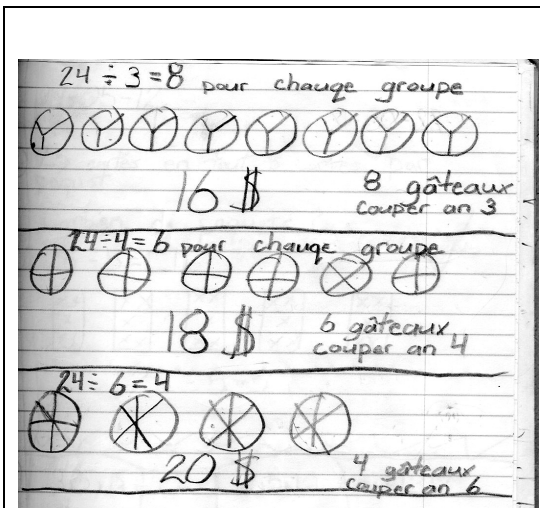 24 ÷ 3 = 8 pour chauqe groupe
16 $
8 gâteaux
couper an 3
24÷4 = 6 pour chauqe groupe
18 $
6 gâteaux
couper an 4
24 ÷ 6 = 4
20 $
4 gâteaux
couper an 6